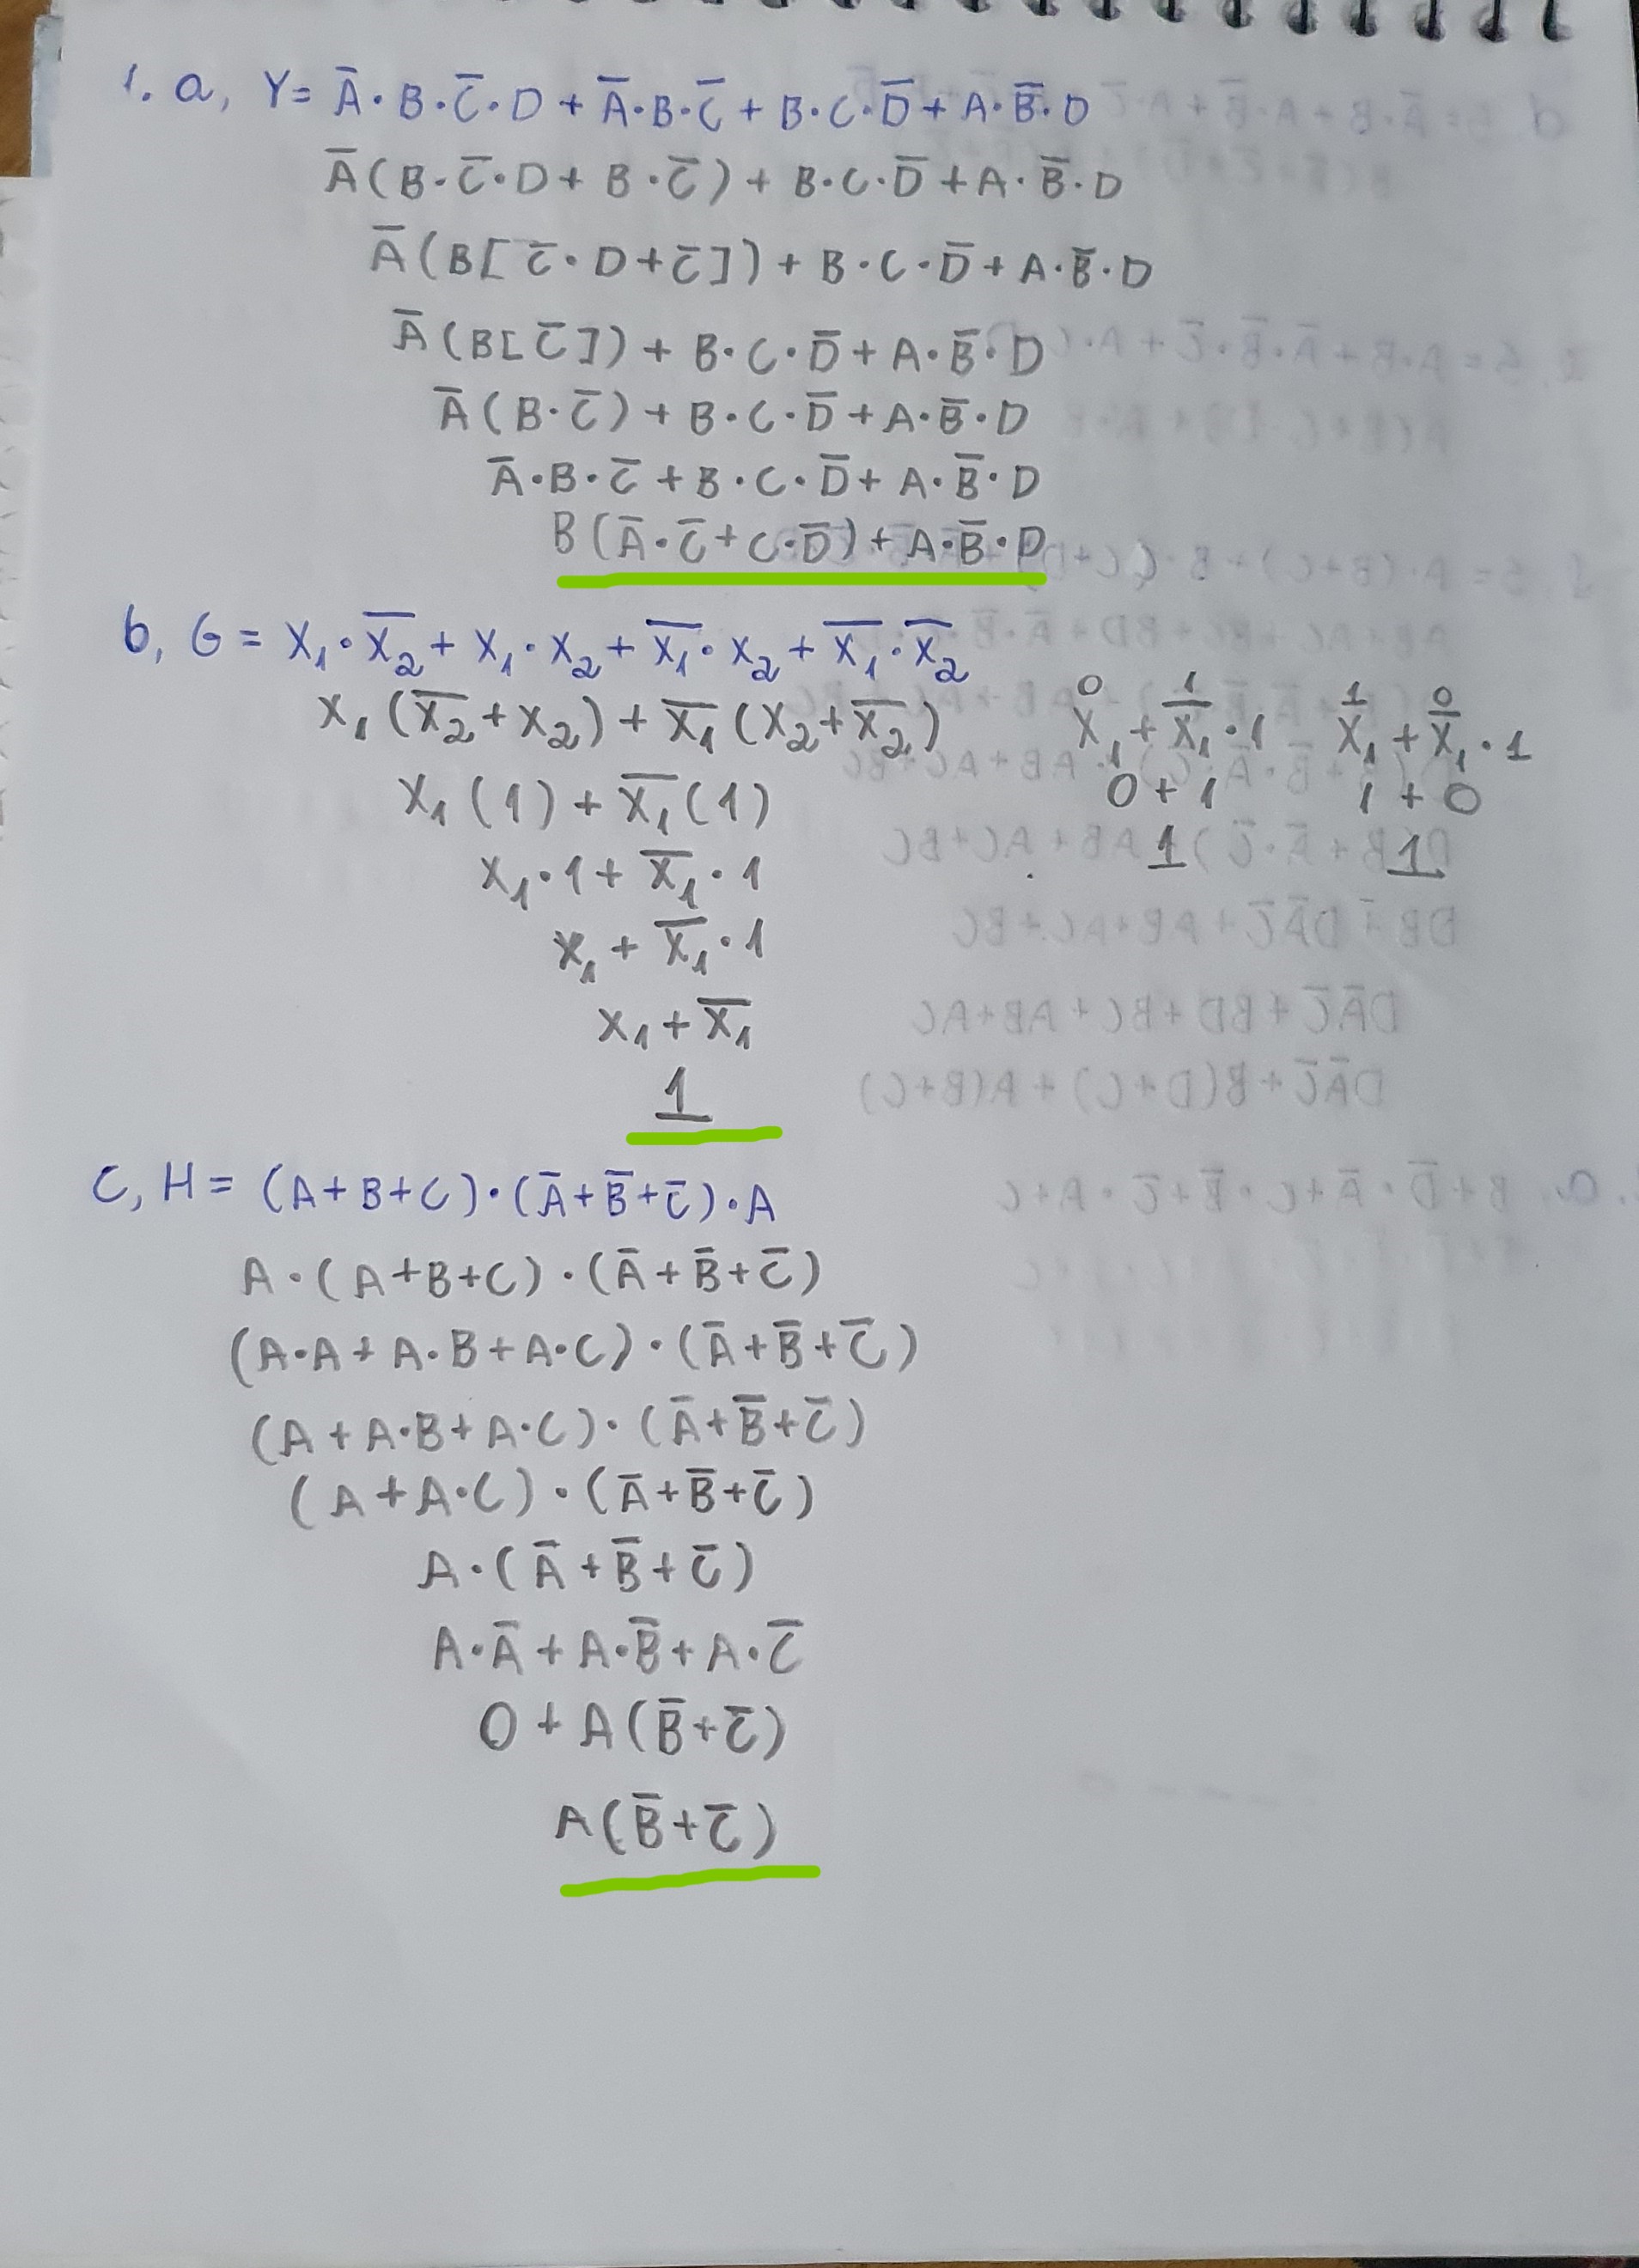 1. a, Y = A̅·B·C̅·D + A̅·B·C̅ + B·C·D̅ + A·B̅·D
A̅(B·C̅·D + B·C̅) + B·C·D̅ + A·B̅·D
A̅(B[C̅·D+C̅]) + B·C·D̅ + A·B̅·D
A̅(B[C̅]) + B·C·D̅ + A·B̅·D
A̅(B·C̅) + B·C·D̅ + A·B̅·D
A̅·B·C̅ + B·C·D̅ + A·B̅·D
B(A̅·C̅+C·D̅) + A·B̅·D
b, G = X₁·X̅₂ + X₁·X₂ + X̅₁·X₂ + X̅₁·X̅₂
X₁(X̅₂+X₂) + X̅₁(X₂+X̅₂)
X₁(1) + X̅₁(1)
X₁·1 + X̅₁·1
X₁ + X̅₁·1
X₁ + X̅₁
1
0 1
X₁ + X̅₁·1
0 + 1
1
1 0
X̅₁ + X̅₁·1
1 + 0
1
C, H = (A+B+C)·(A̅+B̅+C̅)·A
A·(A+B+C)·(A̅+B̅+C̅)
(A·A + A·B + A·C)·(A̅+B̅+C̅)
(A + A·B + A·C)·(A̅+B̅+C̅)
(A + A·C)·(A̅+B̅+C̅)
A·(A̅+B̅+C̅)
A·A̅ + A·B̅ + A·C̅
0 + A(B̅+C̅)
A(B̅+C̅)